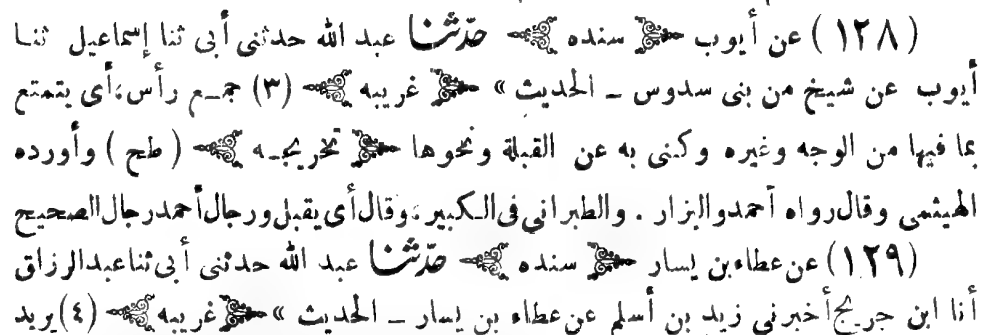 (١٢٨) عن أيوب سنده حدّثنا عبد الله حدثنى أبى ثنا إسماعيل ثنا
أيوب عن شيخ من بنى سدوس ــ الحديث » غريبه (٣) جمـع رأس، أى يتمتع
بما فيها من الوجه وغيره وكنى به عن القبلة ونحوها تخريجـه (طح) وأورده
الهيثمى وقال رواه أحمد والبزار . والطبرانى فى الـكبير، وقال أى يقبل ورجال أحمد رجال الصحيح
(١٢٩) عن عطاء بن يسار سنده حدّثنا عبد الله حدثنى أبى ثنا عبد الرزاق
أنا ابن جريج أخبرنى زيد بن أسلم عن عطاء بن يسار ــ الحديث » غريبه (٤) يريد